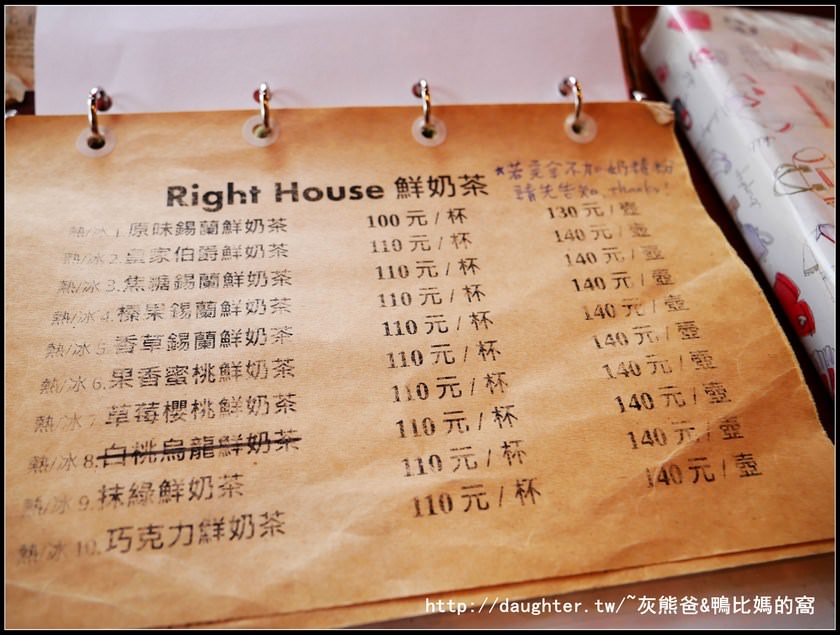 Right House 鮮奶茶
*若完全不加奶精粉
請先告知, thanks!
熱/冰 1.原味錫蘭鮮奶茶 100 元 / 杯 130 元 / 壺
熱/冰 2.皇家伯爵鮮奶茶 110 元 / 杯 140 元 / 壺
熱/冰 3.焦糖錫蘭鮮奶茶 110 元 / 杯 140 元 / 壺
熱/冰 4.榛果錫蘭鮮奶茶 110 元 / 杯 140 元 / 壺
熱/冰 5.香草錫蘭鮮奶茶 110 元 / 杯 140 元 / 壺
熱/冰 6.果香蜜桃鮮奶茶 110 元 / 杯 140 元 / 壺
熱/冰 7.草莓櫻桃鮮奶茶 110 元 / 杯 140 元 / 壺
熱/冰 8.白桃烏龍鮮奶茶 110 元 / 杯 140 元 / 壺
熱/冰 9.抹綠鮮奶茶 110 元 / 杯 140 元 / 壺
熱/冰 10.巧克力鮮奶茶 110 元 / 杯 140 元 / 壺
http://daughter.tw/~灰熊爸&鴨比媽的窩